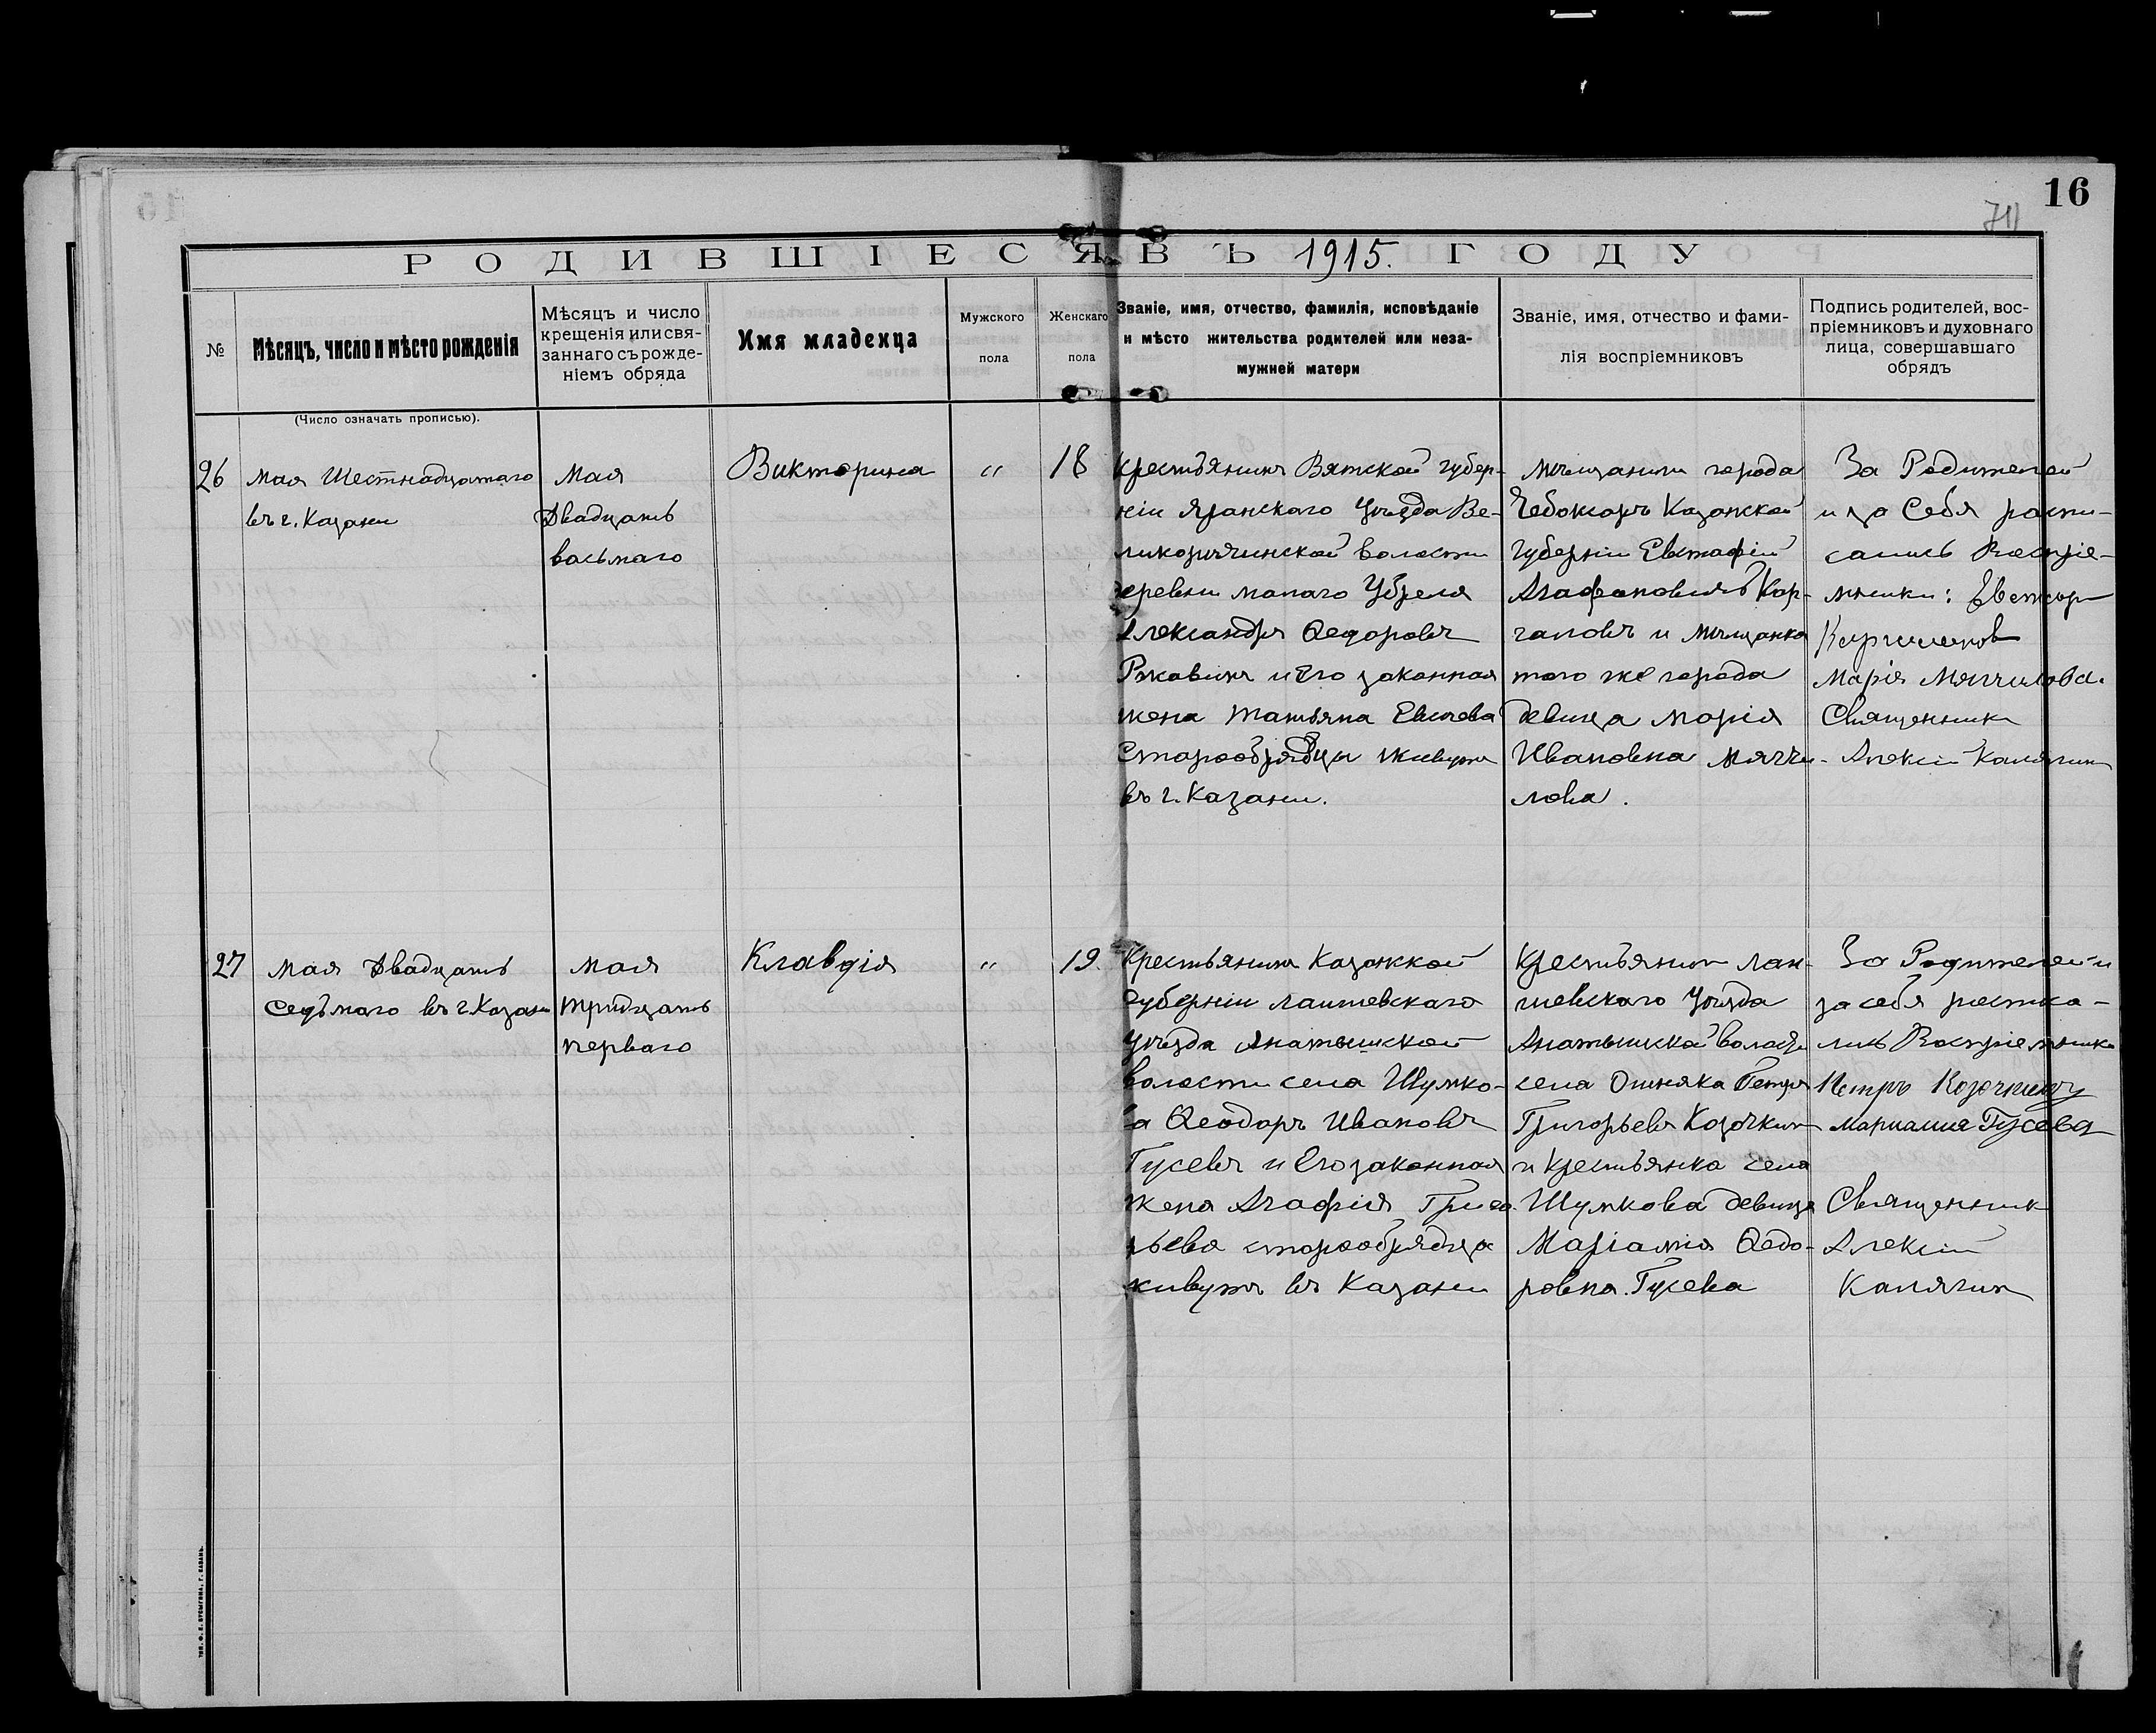 16
РОДИВШІЕСЯ ВЪ 1915. ГОДУ
№
Мѣсяцъ, число и мѣсто рожденія
Мѣсяцъ и число
крещенія или свя-
заннаго съ рожде-
ніемъ обряда
Имя младенца
Мужского
пола
Женскаго
пола
Званіе, имя, отчество, фамилія, исповѣданіе
и мѣсто жительства родителей или неза-
мужней матери
Званіе, имя, отчество и фами-
лія воспріемниковъ
Подпись родителей, вос-
пріемниковъ и духовнаго
лица, совершавшаго
обрядъ
(Число означать прописью).
26
мая Шестнадцатаго
въ г. Казани
мая
Двадцать
восьмаго
Викторина
"
18
крестьянинъ Вятской губер-
ніи Яранскаго Уѣзда Ве-
волости
деревни малаго
Александръ Ѳедоровъ
и Его законная
жена Татьяна
Старообрядцы живутъ
въ г. Казани.
мѣщанинъ города
Чебоксаръ Казанской
губерніи Евстафій
Агафоновичъ Кар-
и мѣщанка
того же города
девица Марія
Ивановна
лова.
За Родителей
и за Себя распи-
сались Воспріе-
мники:
Марія
Священникъ
Алексій Калягин
27
мая Двадцать
Седьмаго въ г. Казани
мая
тридцать
перваго
Клавдія
"
19.
Крестьянинъ Казанской
губерніи лаишевскаго
Уѣзда Анатышской
волости села Шумко-
ва Ѳеодоръ Ивановъ
Гусевъ и Его законная
жена Агафія Григо-
рьева старообрядца
живутъ въ Казани
Крестьянин лаи-
шевскаго Уѣзда
Анатышской волости
села Ошняка Петръ
Григорьевъ Козочкин
и Крестьянка села
Шумкова девица
Маріамія Ѳедо-
ровна Гусева
За Родителей и
за себя росписа-
лись Воспріемники
Петръ
Мариамия Гусева
Священник
Алексій
Калягин
тип. Ф. Е. Бусыгина, г. Казань.